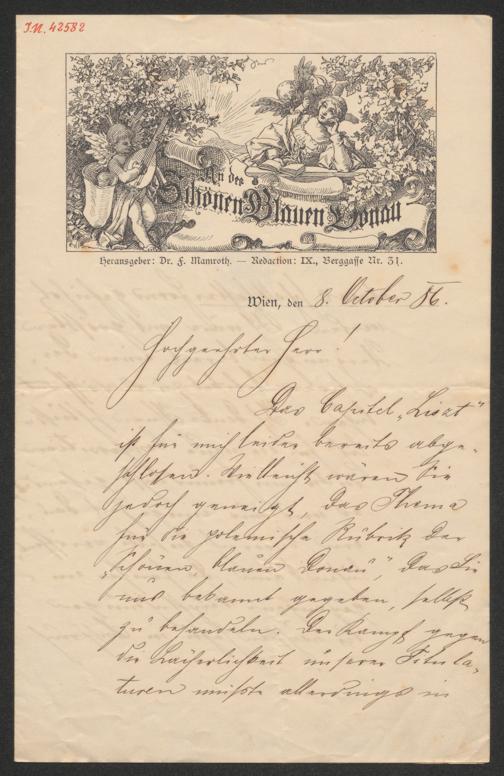 I.N. 42582
An der
Schönen Blauen Donau
Herausgeber: Dr. F. Mamroth. — Redaction: IX., Berggasse Nr. 31.
Wien, den 8. October 86.
Hochgeehrter Herr!
Das Capitel „Liszt“
ist für mich leider bereits abge-
schlossen. Vielleicht wären Sie
jedoch geneigt, das Thema
für die polemische Rubrik der
„Schönen blauen Donau“, das Sie
uns bekannt gegeben, selbst
zu behandeln. Der Kampf gegen
die Lächerlichkeit unserer Titula-
turen müßte allerdings in